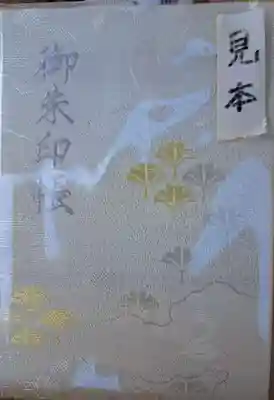 見本
御朱印帳